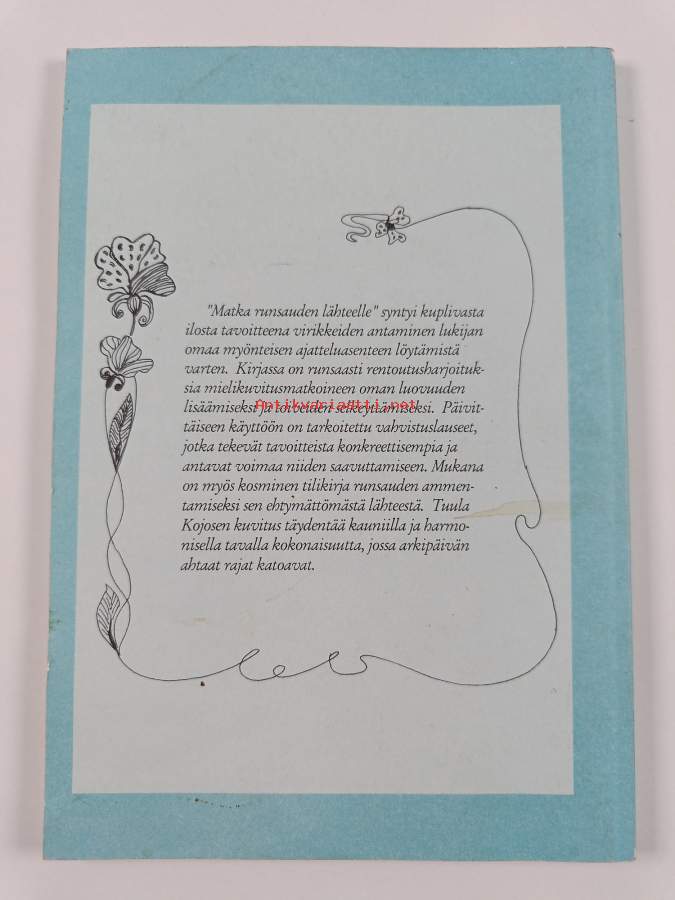 "Matka runsauden lähteelle" syntyi kuplivasta
ilosta tavoitteena virikkeiden antaminen lukijan
omaa myönteisen ajatteluasenteen löytämistä
varten. Kirjassa on runsaasti rentoutusharjoituk-
sia mielikuvitusmatkoineen oman luovuuden
lisäämiseksi ja toiveiden selkeyttämiseksi. Päivit-
Antikvariaatti.net
täiseen käyttöön on tarkoitettu vahvistuslauseet,
jotka tekevät tavoitteista konkreettisempia ja
antavat voimaa niiden saavuttamiseen. Mukana
on myös kosminen tilikirja runsauden ammen-
tamiseksi sen ehtymättömästä lähteestä. Tuula
Kojosen kuvitus täydentää kauniilla ja harmo-
nisella tavalla kokonaisuutta, jossa arkipäivän
ahtaat rajat katoavat.